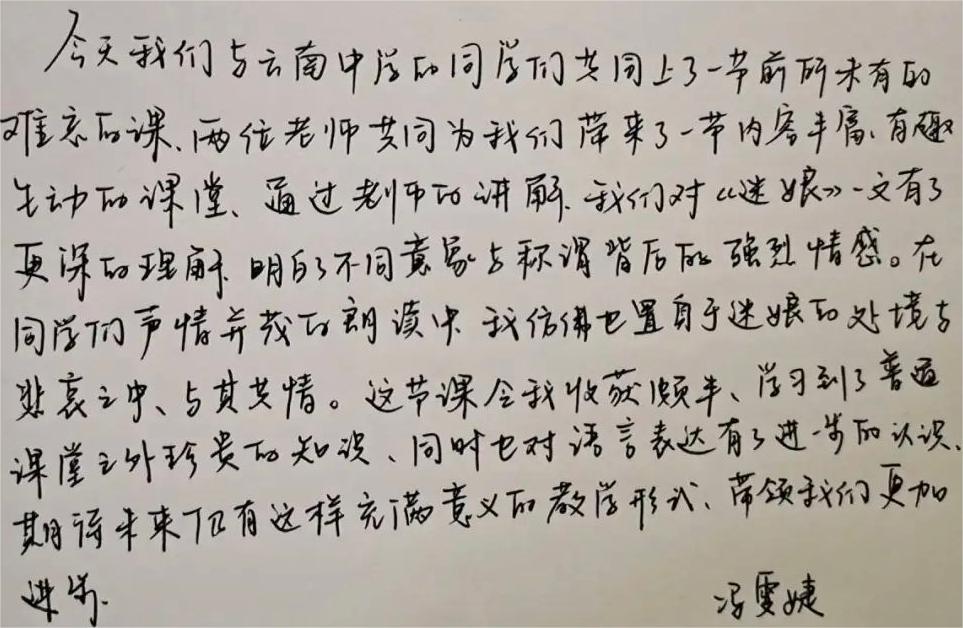 今天我们与云南中学的同学们共同上了一节前所未有的
难忘的课、两位老师共同为我们带来了一节内容丰富、有趣
生动的课堂、通过老师的讲解、我们对《迷娘》一文有了
更深的理解、明白了不同意象与称谓背后的强烈情感。在
同学们声情并茂的朗读中、我仿佛也置身于迷娘的处境与
悲哀之中、与其共情。这节课令我收获颇丰、学习到了普通
课堂之外珍贵的知识、同时也对语言表达有了进一步的认识、
期待未来仍有这样充满意义的教学形式、带领我们更加
进步.
冯雯婕